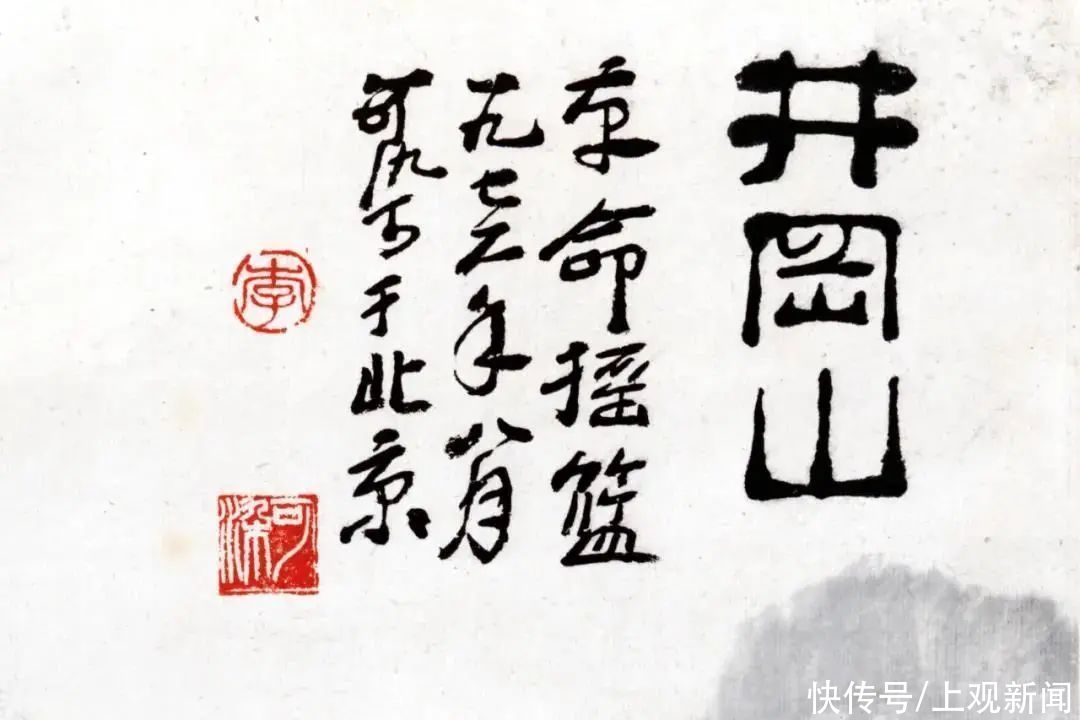 井岡山
革命摇篮
一九七六年八月
可染写于北京
李
可染
快传号/上观新闻